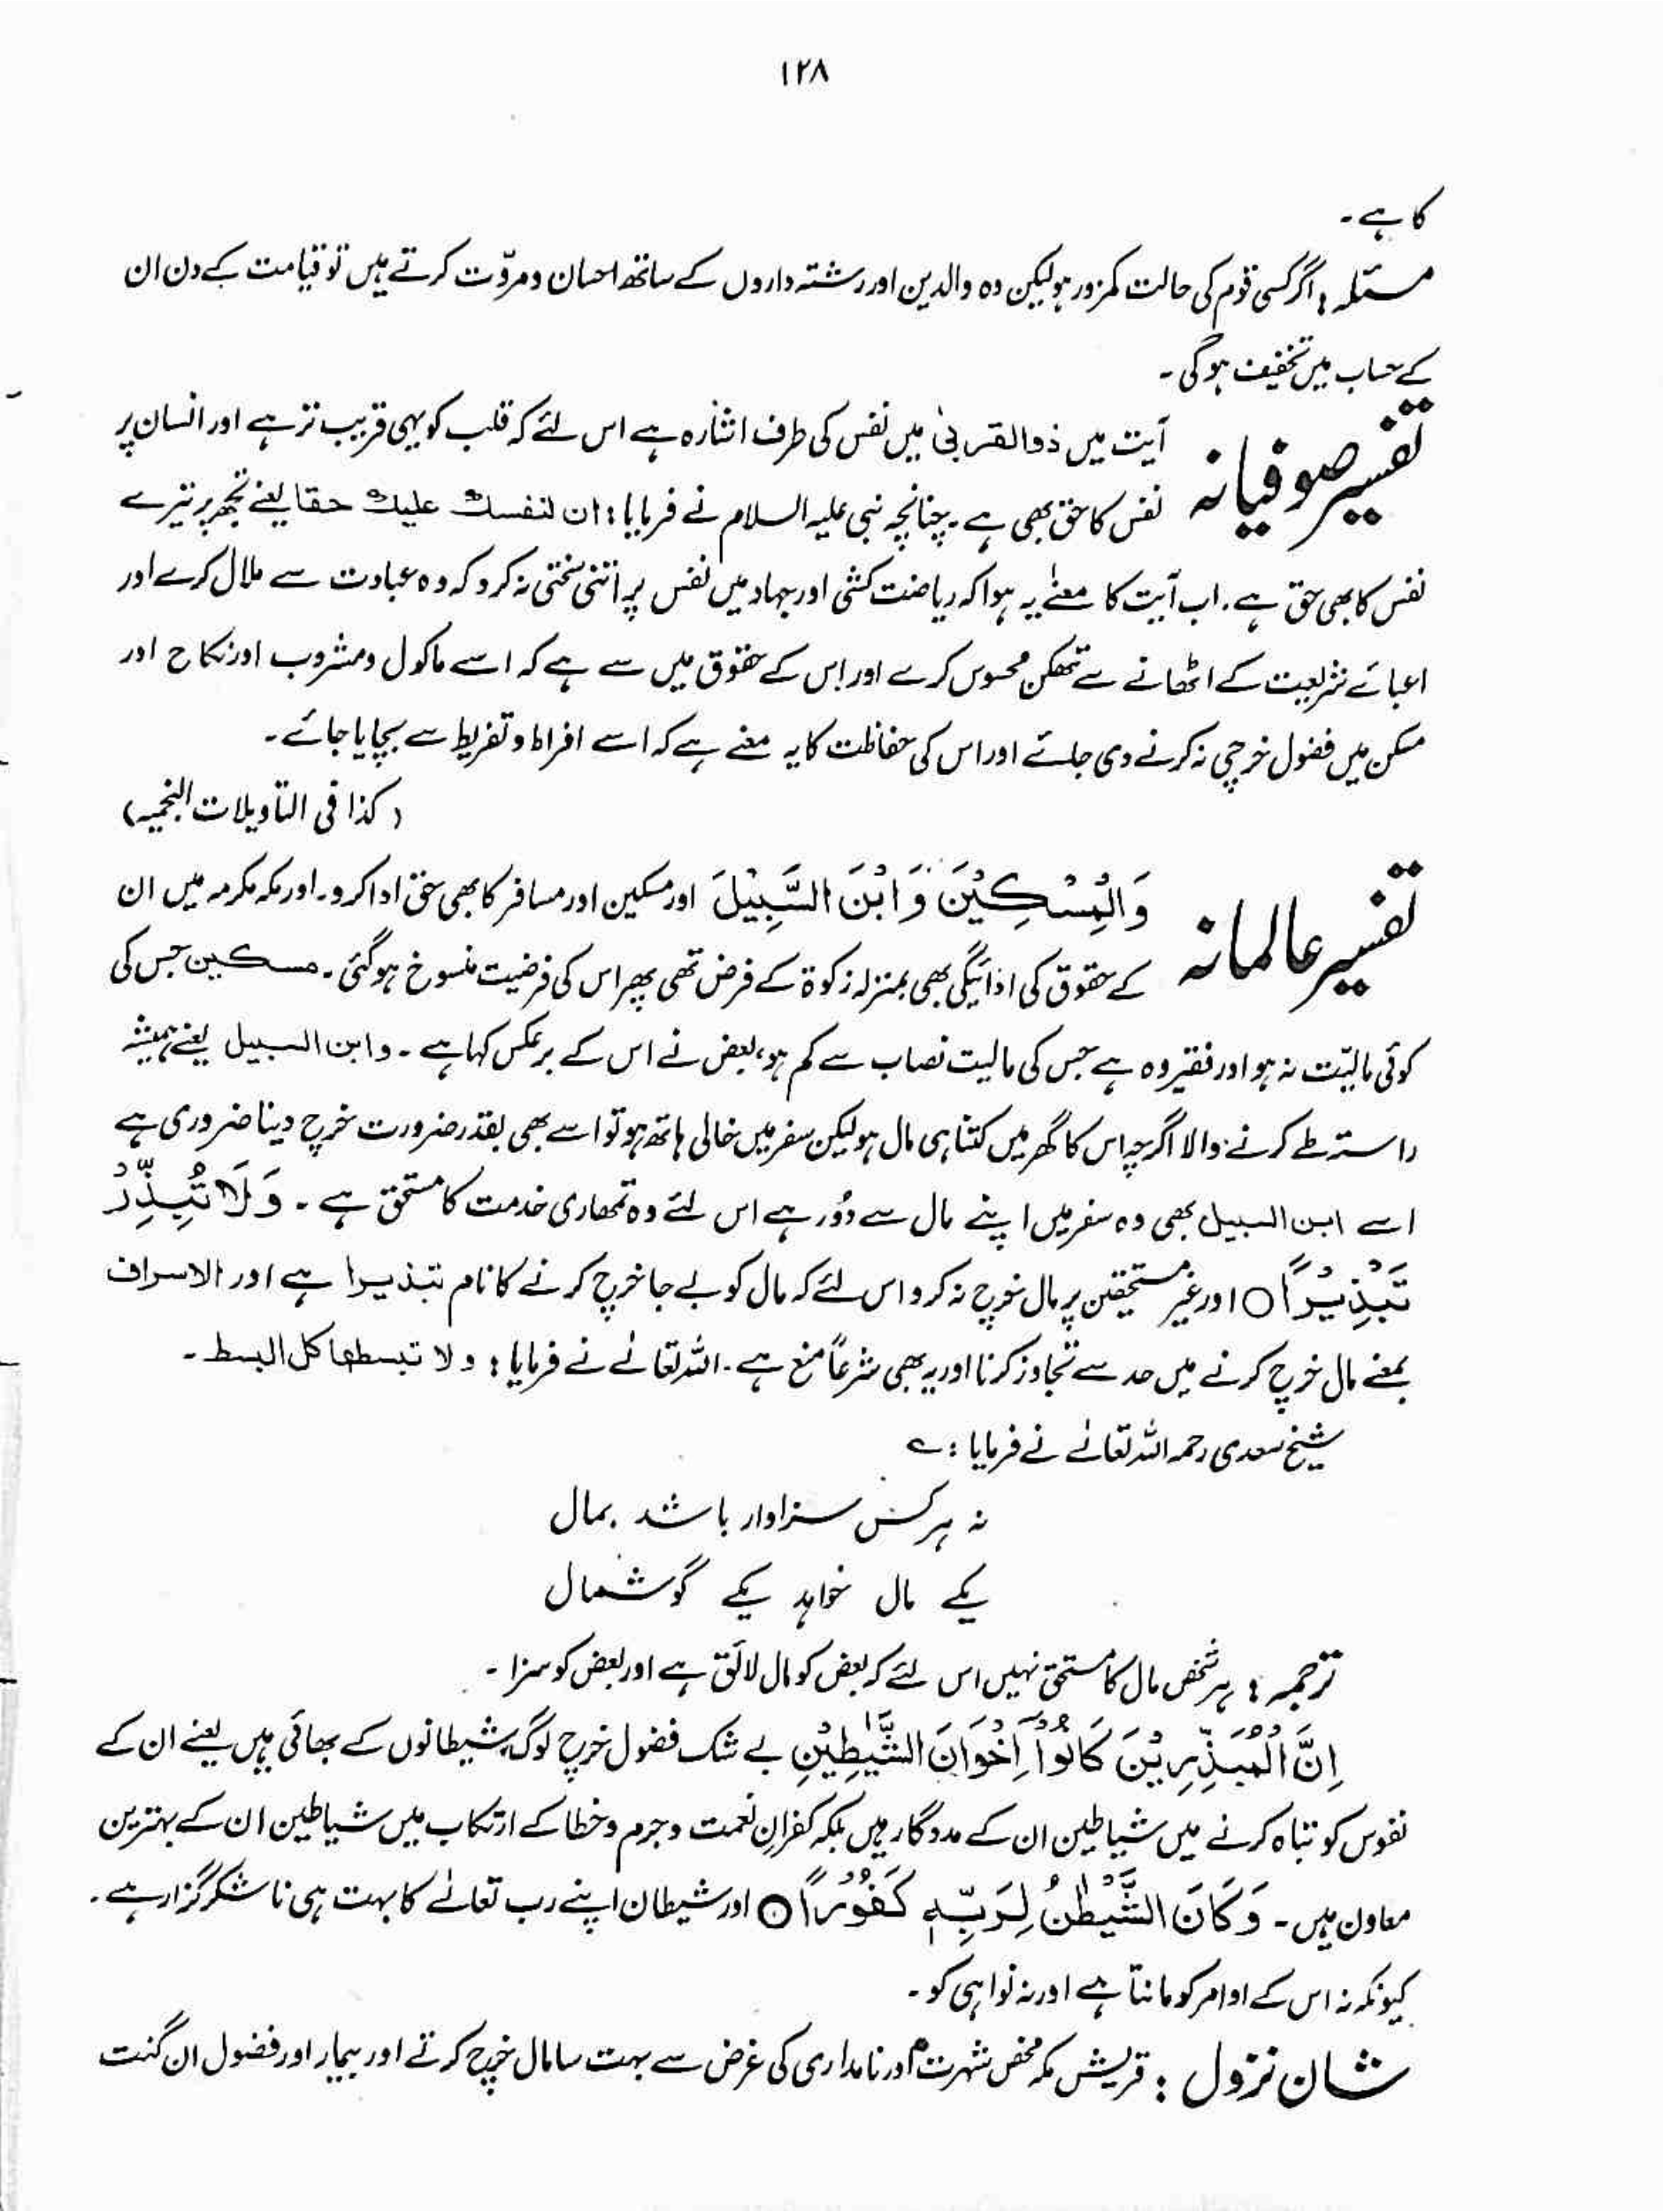 ۱۲۸
کا ہے۔
مسئلہ: اگر کسی قوم کی حالت کمزور ہو لیکن وہ والدین اور رشتہ داروں کے ساتھ احسان و مروّت کرتے ہیں تو قیامت کے دن ان
کے حساب میں تخفیف ہوگی۔
تفسیر صوفیانہ آیت میں ذوالقربیٰ میں نفس کی طرف اشارہ ہے اس لئے کہ قلب کو یہی قریب تر ہے اور انسان پر
نفس کا حق بھی ہے۔ چنانچہ نبی علیہ السلام نے فرمایا: ان لنفسک علیک حقا یعنے تجھ پر تیرے
نفس کا بھی حق ہے۔ اب آیت کا معنےٰ یہ ہوا کہ ریاضت کشی اور جہاد میں نفس پر اتنی سختی نہ کرو کہ وہ عبادت سے ملال کرے اور
اعبائے شریعت کے اٹھانے سے تھکن محسوس کرے اور اس کے حقوق میں سے ہے کہ اسے ماکول و مشروب اور نکاح اور
مسکن میں فضول خرچی نہ کرنے دی جائے اور اس کی حفاظت کا یہ معنے ہے کہ اسے افراط و تفریط سے بچایا جائے۔
(کذا فی التأویلات النجمیہ)
تفسیر عالمانہ وَالْمِسْکِیْنَ وَابْنَ السَّبِیْلَ اور مسکین اور مسافر کا بھی حق ادا کرو۔ اور مکہ مکرمہ میں ان
کے حقوق کی ادائیگی بھی بمنزلہ زکوۃ کے فرض تھی پھر اس کی فرضیت منسوخ ہوگئی۔ مسکین جس کی
کوئی مالیّت نہ ہو اور فقیر وہ ہے جس کی مالیت نصاب سے کم ہو، بعض نے اس کے برعکس کہا ہے۔ وابن السبیل یعنے ہمیشہ
راستہ طے کرنے والا اگرچہ اس کا گھر میں کتنا ہی مال ہو لیکن سفر میں خالی ہاتھ ہو تو اسے بھی بقدر ضرورت خرچ دینا ضروری ہے
اسے ابن السبیل بھی وہ سفر میں اپنے مال سے دُور ہے اس لئے وہ تمھاری خدمت کا مستحق ہے۔ وَلَا تُبَذِّرْ
تَبْذِیْرًا ○ اور غیر مستحقین پر مال خرچ نہ کرو اس لئے کہ مال کو بے جا خرچ کرنے کا نام تبذیرا ہے اور الاسراف
بمعنے مال خرچ کرنے میں حد سے تجاوز کرنا اور یہ بھی شرعاً منع ہے۔ اللہ تعالےٰ نے فرمایا: ولا تبسطها کل البسط۔
شیخ سعدی رحمہ اللہ تعالےٰ نے فرمایا: ؎
نہ ہر کس سزاوار باشد بمال
یکے مال خواہد یکے گوشمال
ترجمہ: ہر شخص مال کا مستحق نہیں اس لئے کہ بعض کو مال لائق ہے اور بعض کو سزا۔
اِنَّ الْمُبَذِّرِیْنَ کَانُوْٓا اِخْوَانَ الشَّیٰطِیْنِ بے شک فضول خرچ لوگ شیطانوں کے بھائی ہیں یعنے ان کے
نفوس کو تباہ کرنے میں شیاطین ان کے مددگار ہیں بلکہ کفرانِ نعمت و جرم و خطا کے ارتکاب میں شیاطین ان کے بہترین
معاون ہیں۔ وَکَانَ الشَّیْطٰنُ لِرَبِّہٖ کَفُوْرًا ○ اور شیطان اپنے رب تعالےٰ کا بہت ہی ناشکر گزار ہے۔
کیونکہ نہ اس کے اوامر کو مانتا ہے اور نہ نواہی کو۔
شان نزول: قریش مکہ محض شہرت اور نامداری کی غرض سے بہت سا مال خرچ کرتے اور بیمار اور فضول ان گنت